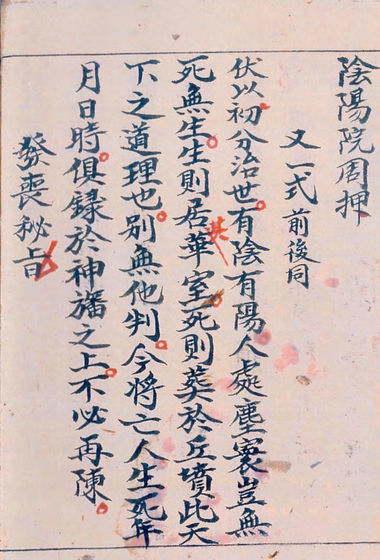 陰陽院周押
又一式 前後同
伏以初分治世。有陰有陽人處塵寰豈無
死無生。生則居華室。死則葬於丘墳此天
下之道理也。別無他判。今將亡人生死年
月日時。俱錄於神旛之上。不必再陳。
發喪秘旨